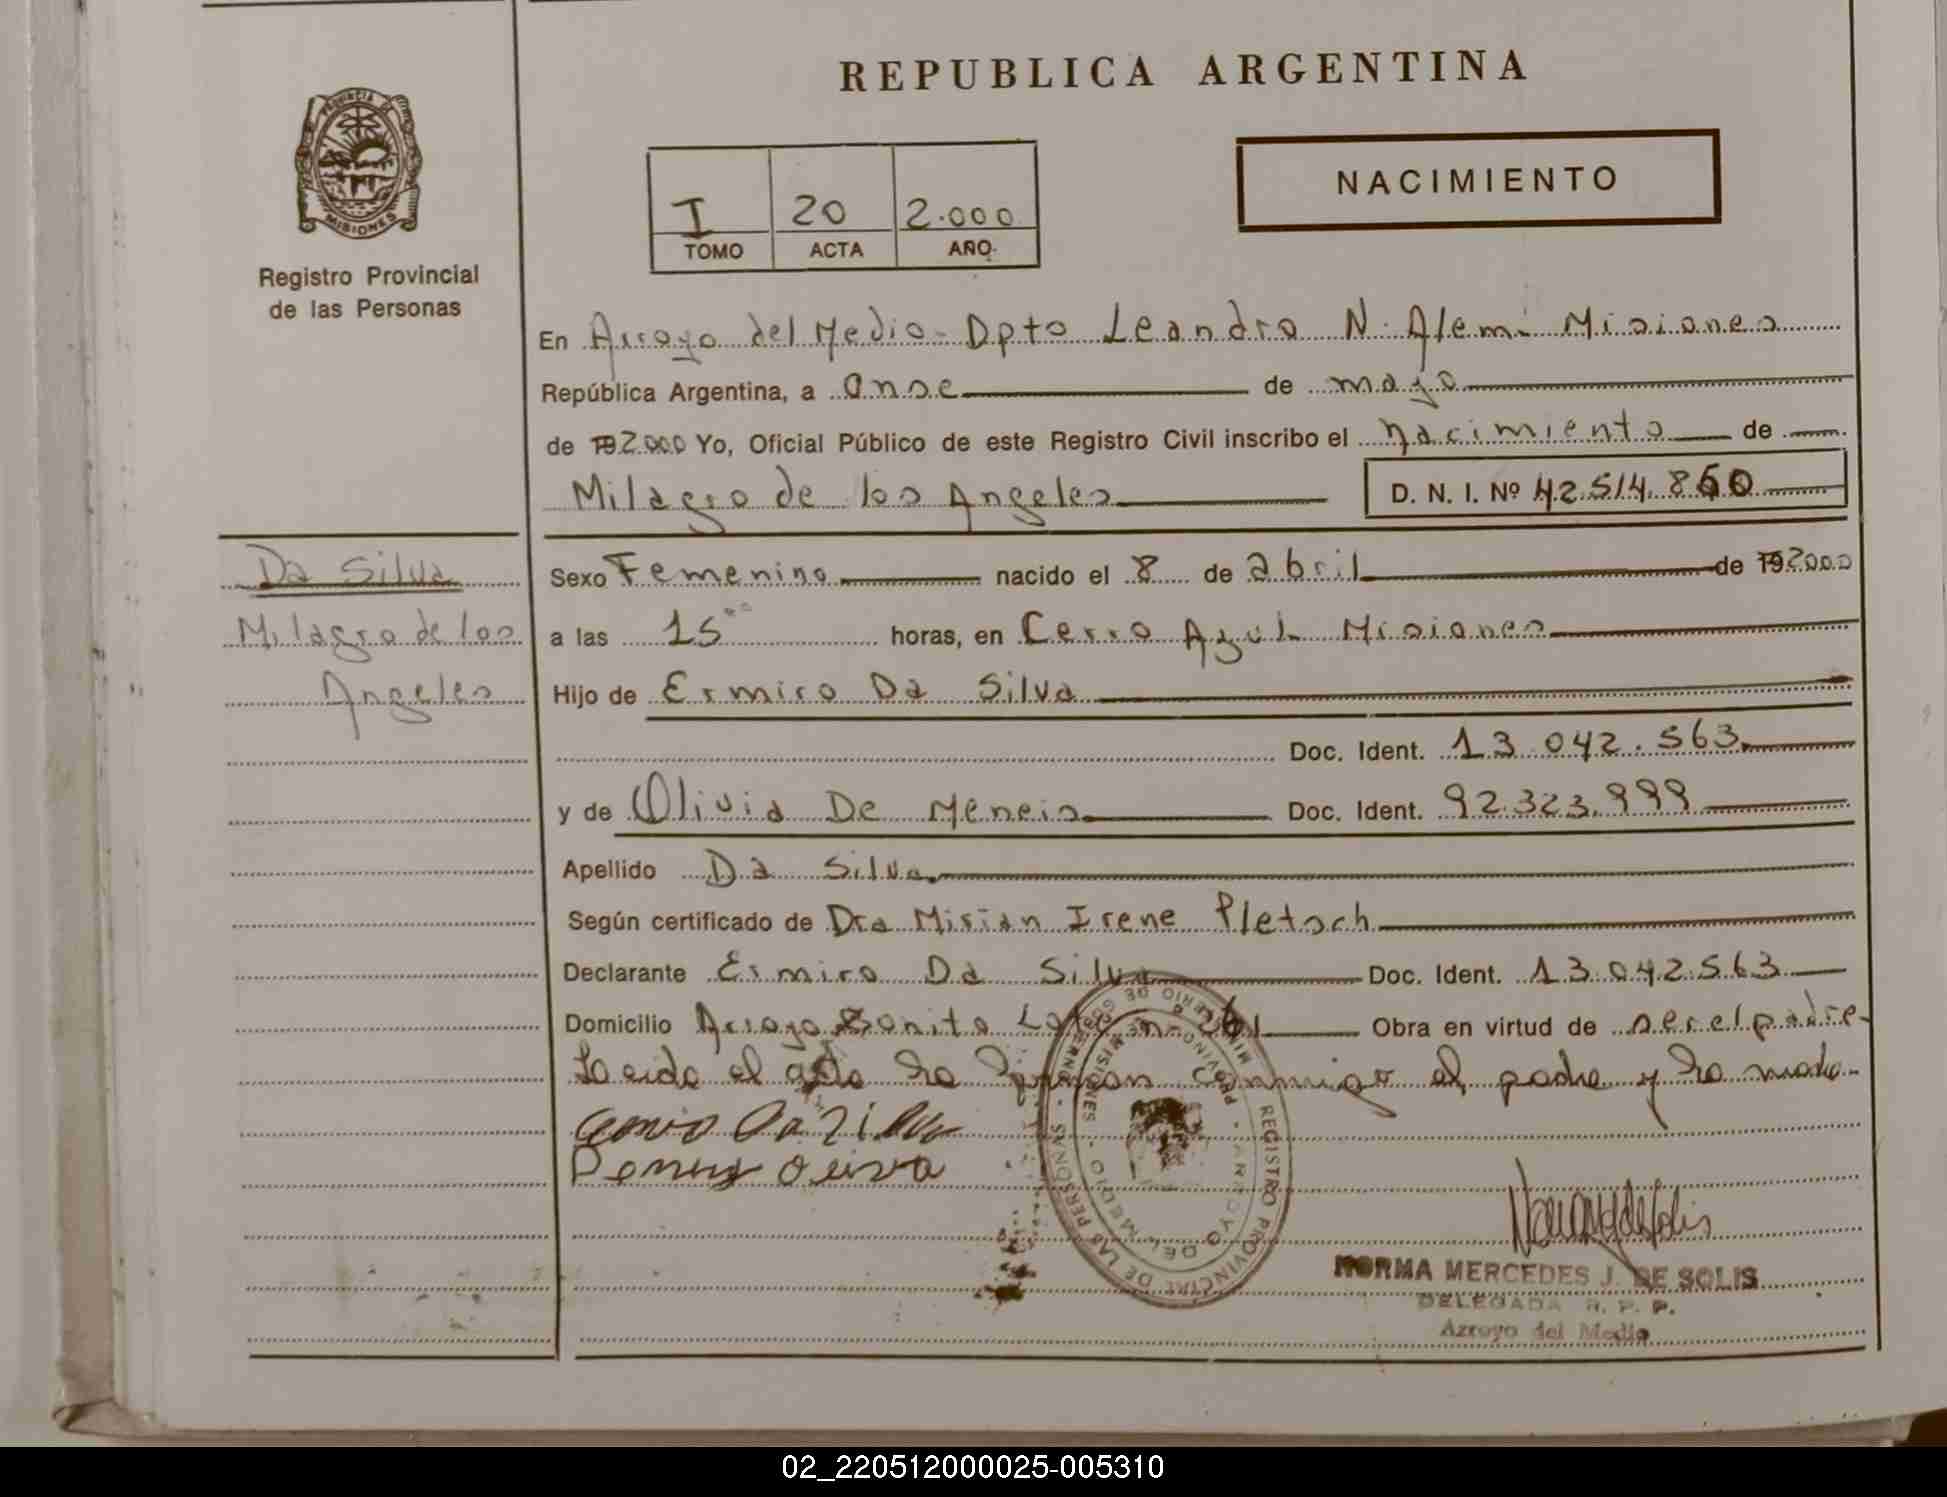 REPUBLICA ARGENTINA
PROVINCIA DE
MISIONES
Registro Provincial
de las Personas
I 20 2.000
TOMO ACTA AÑO
NACIMIENTO
En Arroyo del Medio - Dpto Leandro N. Alem - Misiones
República Argentina, a onse de mayo
de 192.000 Yo, Oficial Público de este Registro Civil inscribo el nacimiento de
Milagro de los Angeles D. N. I. Nº 42.514.860
Da Silva
Milagro de los
Angeles
Sexo Femenino nacido el 8 de abril de 192000
a las 15°° horas, en Cerro Azul Misiones
Hijo de Ermiro Da Silva
Doc. Ident. 13.042.563
y de Olivia De Meneis Doc. Ident. 92.323.999
Apellido Da Silva
Según certificado de Dra Mirian Irene Pletsch
Declarante Ermiro Da Silva Doc. Ident. 13.042.563
Domicilio Arroyo Bonito Lote n- Obra en virtud de ser el padre-
Leida el acta la firman conmigo el padre y la madre-
Da Silva
REGISTRO PROVINCIAL DE LAS PERSONAS - MINISTERIO DE GOBIERNO
PROVINCIA DE MISIONES - ARROYO DEL MEDIO
NORMA MERCEDES J. DE SOLIS
DELEGADA R. P. P.
Arroyo del Medio
02_220512000025-005310